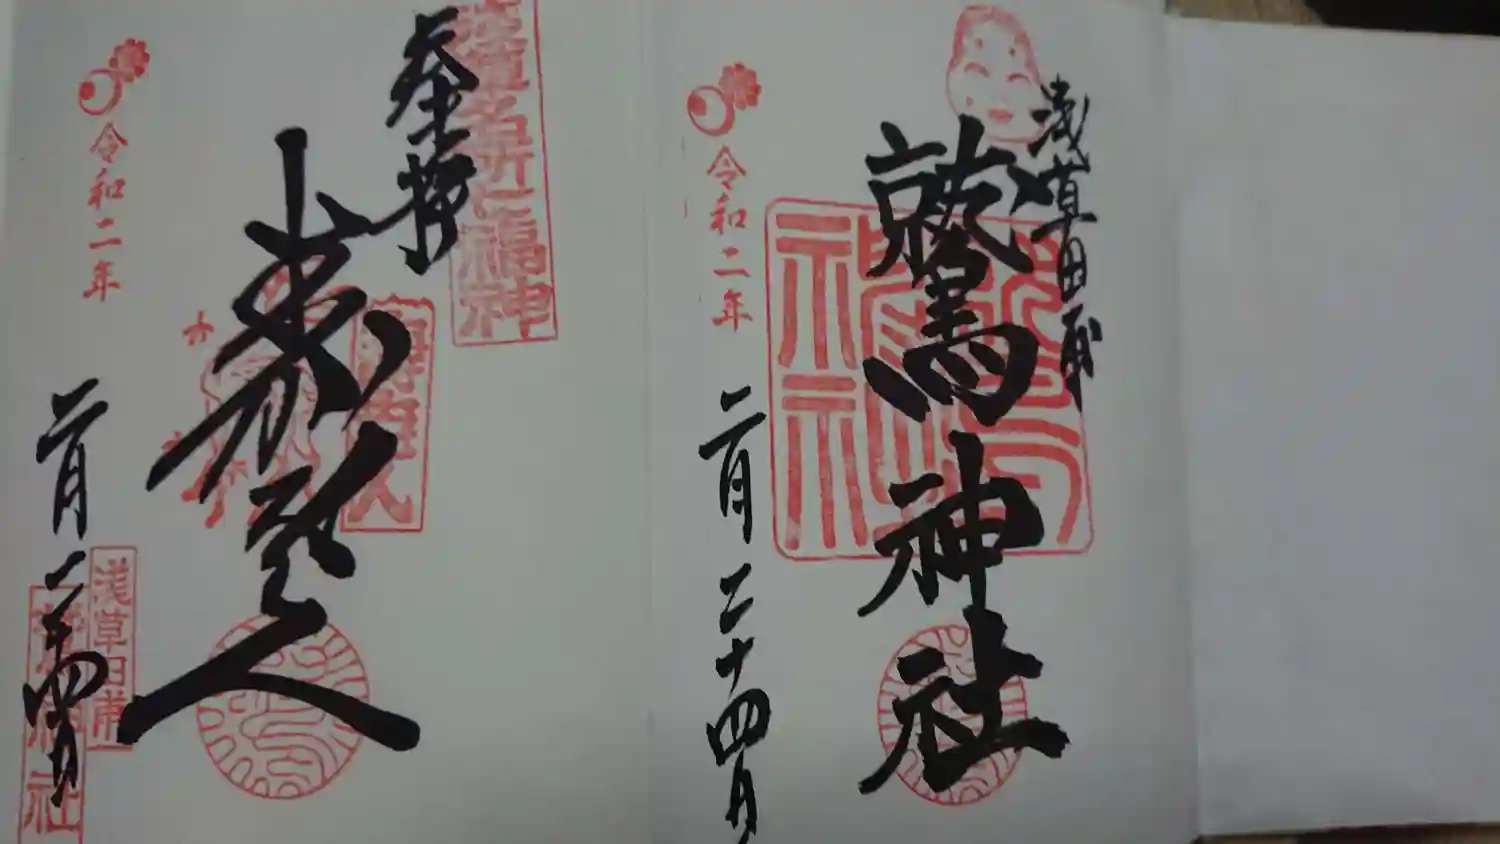 浅草田甫
鷲神社
令和二年
二月二十四日
奉拝
寿老人
浅草名所七福神
寿老人
令和二年
二月二十四日
浅草田甫
鷲神社